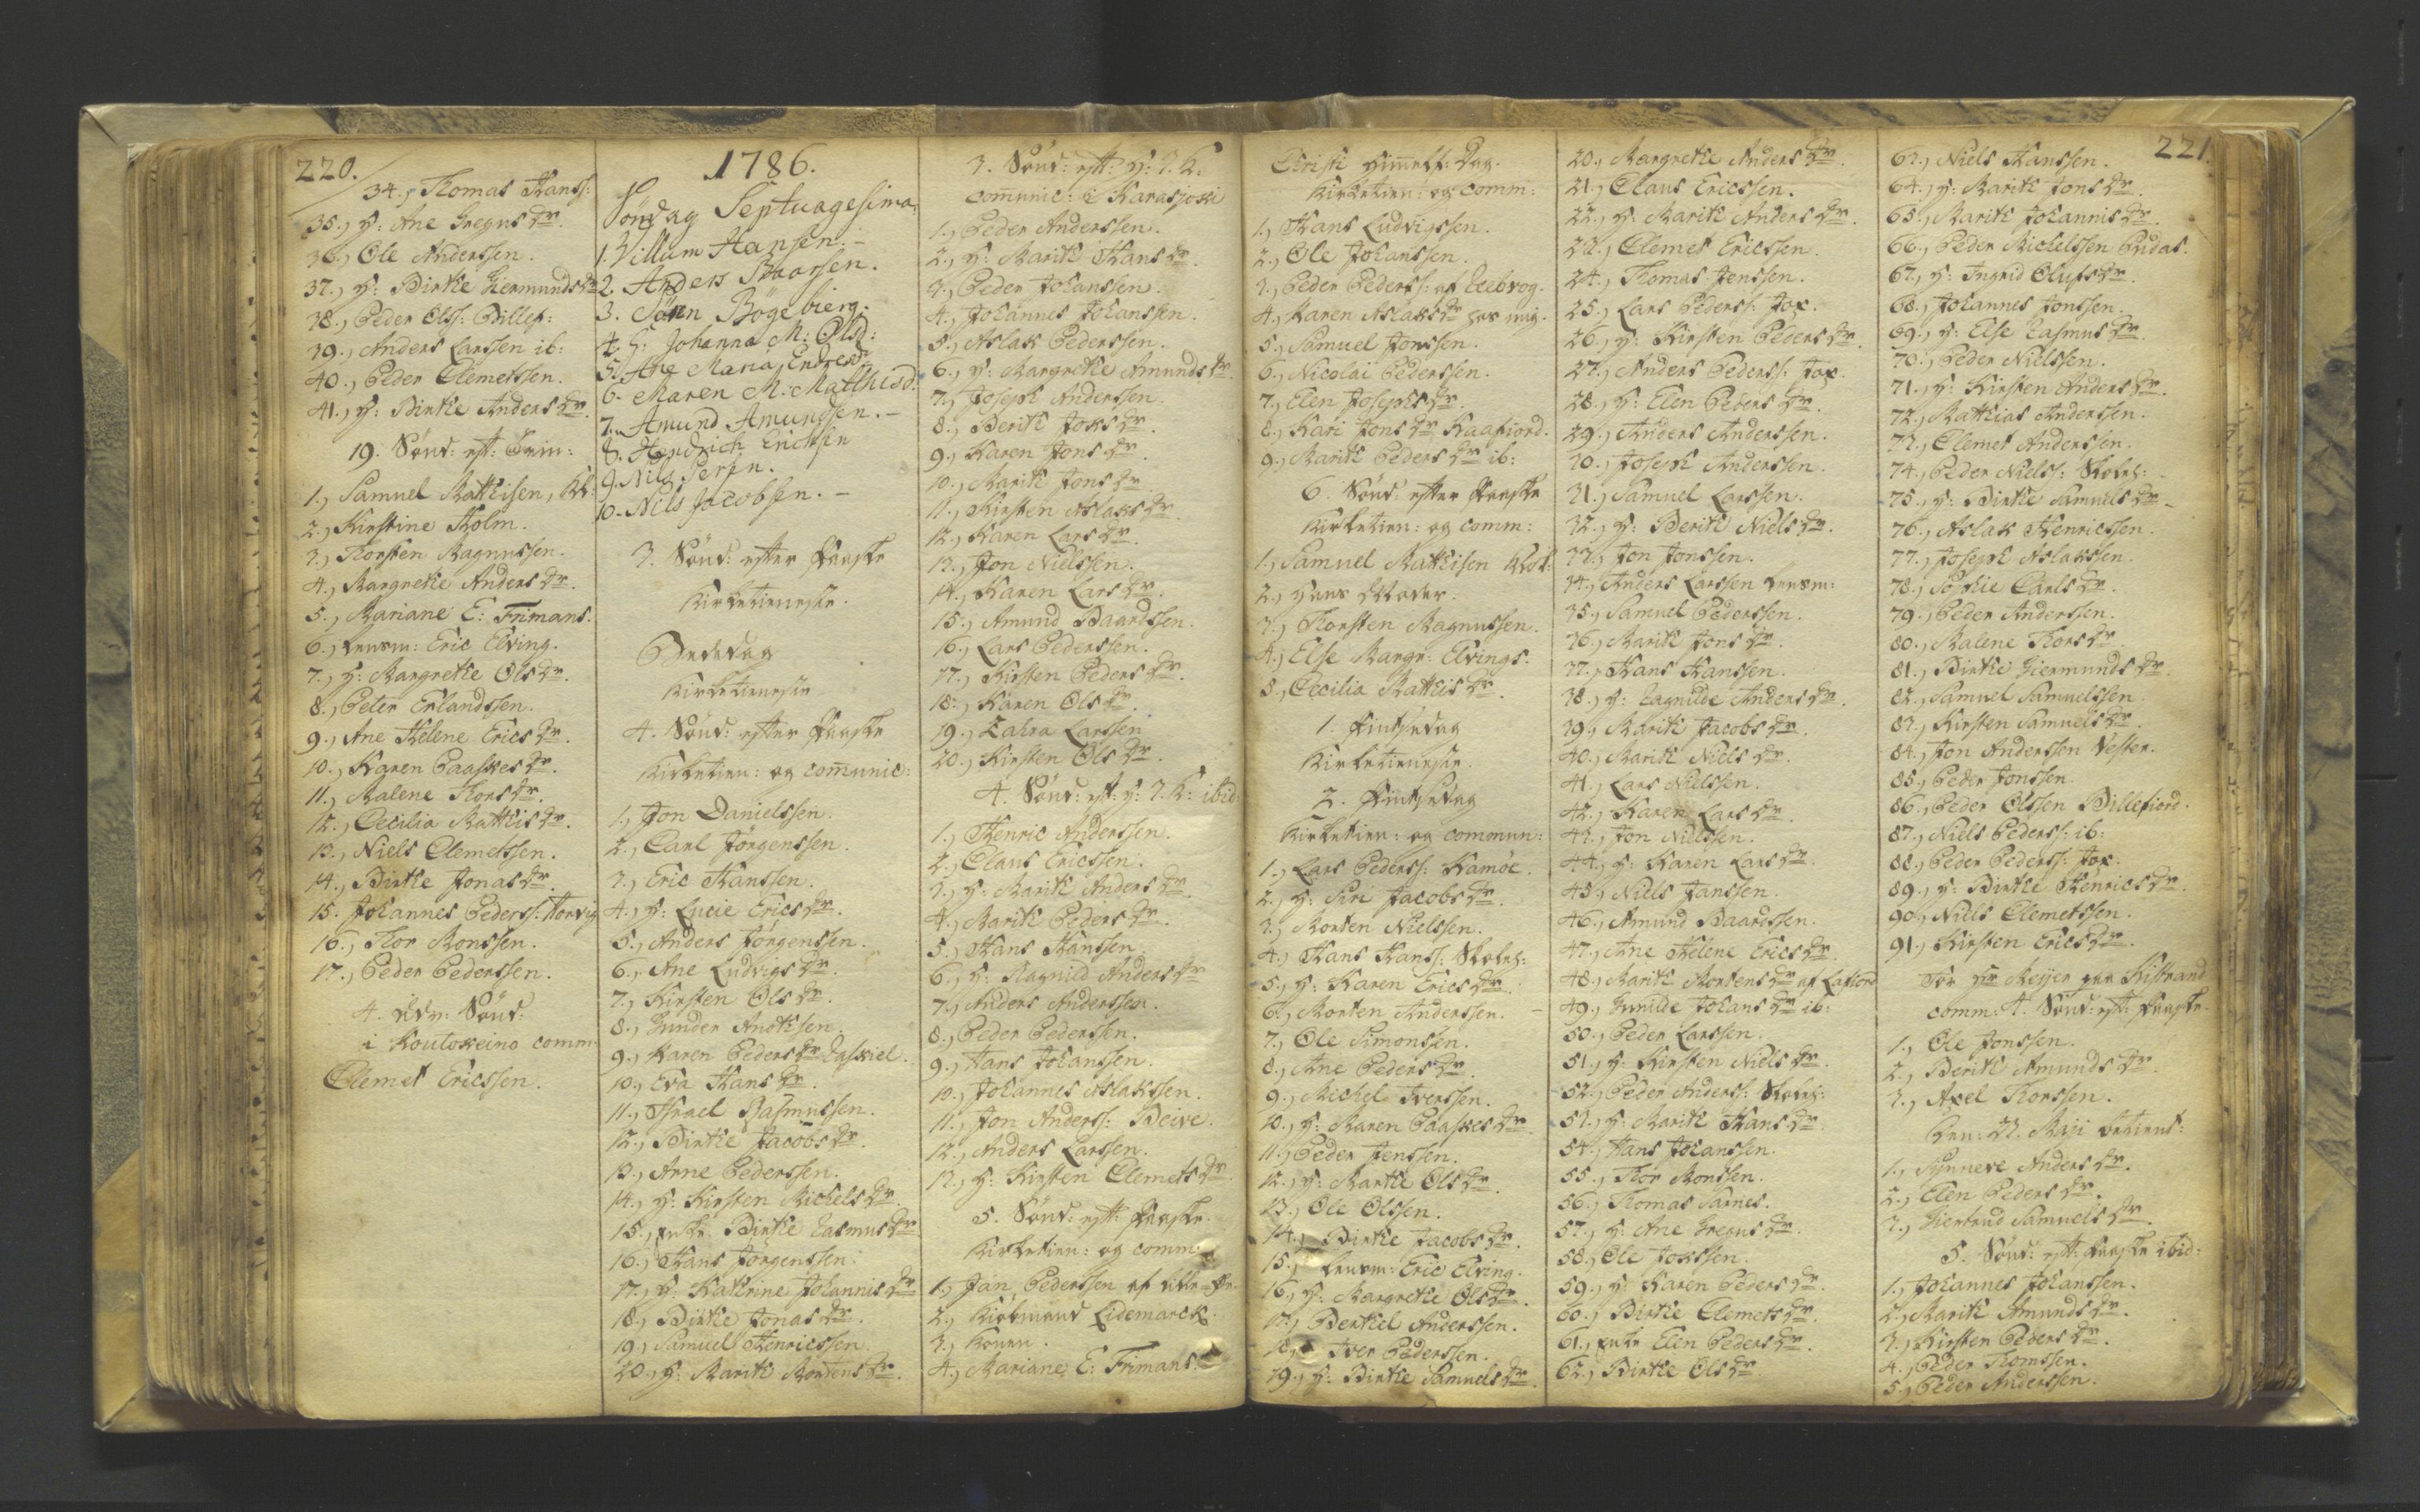 220.
34., Thomas Hanss:
35., H: Ane Gregus Dr.
36., Ole Anderssen.
37., H: Birthe Giermunds Dr
38., Peder Olss: Billef:
39., Anders Larssen ib:
40., Peder Clemetssen.
41., H: Birthe Anders Dr.
19. Sønd: eft: Trin:
1., Samuel Mathisen, Kl:
2., Kirstine Holm.
3., Thorsten Magnussen.
4., Margrethe Anders Dr.
5., Mariane E: Frimans.
6., Lensm: Eric Elving.
7., H: Margrethe Ols Dr.
8., Peter Erlandssen.
9., Ane Helene Erics Dr.
10., Karen Paaskes Dr.
11., Malene Thors Dr.
12., Cecilia Matthis Dr.
13., Niels Clemetssen.
14., Birthe Jonas Dr.
15. Johannes Peders:
16., Thor Monssen.
17., Peder Pederssen.
4. Adv: Sønd:
i Koutokeino comm:
Clemet Ericssen.
1786.
Søndag Septuagesima.
1. Villum Hansen. -
2. Anders Baarsen.
3. Sören Bögebierg.
4. H: Johanna M: Olsd:
5. Ane Maria Endresd:
6. Maren M: Matthisd:
7. Amund Amundsen. -
8. Hendrich Erichsen
9. Nils Persen.
10. Nils Jacobsen. -
3. Sønd: efter Paaske
Kirketieneste.
Bededag
Kirketieneste
4. Sønd: efter Paaske
Kirketien: og communic:
1., Jon Danielssen.
2., Carl Jörgenssen.
3., Eric Hanssen.
4., H: Lucie Erics Dr.
5., Anders Jörgenssen.
6., Ane Ludvigs Dr.
7., Kirsten Ols Dr.
8., Gunder
9., Karen Peders Dr
10., Eva Hans Dr.
11., Israel Rasmussen.
12., Birthe Jacobs Dr.
13., Arne Pederssen.
14., H: Kirsten Michels Dr.
15., Enke Birthe Rasmus Dr
16., Hans Jörgenssen.
17., H: Kathrine Johannis Dr
18., Birthe Jonas Dr.
19., Samuel Henricssen.
20., H: Marith Mortens Dr.
3. Sønd: eft: H: 3. K:
communic: i Karasjoki
1., Peder Anderssen.
2., H: Marith Hans Dr.
3., Peder Johanssen.
4., Johannes Johanssen.
5., Aslak Pederssen.
6., H: Margrethe Amunds Dr.
7., Joseph Anderssen.
8., Berith Joks Dr.
9., Karen Jons Dr.
10., Marith Jons Dr.
11., Kirsten Aslaks Dr.
12., Karen Lars Dr.
13., Jon Nielssen.
14., Karen Lars Dr.
15., Amund Baardssen.
16., Lars Pederssen.
17., Kirsten Peders Dr.
18., Karen Ols Dr.
19., Zahra Larssen
20., Kirsten Ols Dr.
4. Sønd: eft: H: 3. K: ibid:
1., Henric Anderssen.
2., Claus Ericssen.
3., H: Marith Anders Dr.
4., Marith Peders Dr.
5., Hans Hanssen.
6., H: Ragnild Anders Dr
7., Anders Anderssen.
8., Peder Pederssen.
9., Hans Johanssen.
10., Johannes Aslakssen.
11., Jon Anderss: Beive.
12., Anders Larssen.
13., H: Kirsten Clemets Dr.
5. Sønd: eft: Paaske.
Kirketien: og comm:
1., Jan Pederssen af
2., Kiøbmand Lidemarck.
3., Konen.
4., Mariane E: Frimans.
221.
Christi Himmelf: Dag.
Kirketien: og comm:
1., Hans Ludvigssen.
2., Ole Johanssen.
3., Peder Pederss: af Leebvog.
4., Karen Aslaks Dr hos mig.
5., Samuel Jonssen.
6., Nicolai Pederssen.
7., Elen Josephs Dr.
8., Kari Jons Dr Kaafiord.
9., Marith Peders Dr ib:
6. Sønd: efter Paaske
Kirketien: og comm:
1., Samuel Mathisen Klok:
2., Hans Moder.
3., Thorsten Magnussen.
4., Else Margr: Elvings.
5., Cecilia Matthis Dr.
1. Pintsedag
Kirketieneste.
2. Pintsedag
Kirketien: og commun:
1., Lars Pederss: Kamöe.
2., H: Siri Jacobs Dr.
3., Morten Nielssen.
4., Hans Hanss: Skoleh:
5., H: Karen Erics Dr.
6., Morten Anderssen. -
7., Ole Simonssen.
8., Ane Peders Dr.
9., Michel Iverssen.
10., H: Maren Paaskes Dr
11., Peder Jenssen.
12., H: Marthe Ols Dr.
13., Ole Olssen.
14., Birthe Jacobs Dr.
15., Lensm: Eric Elving.
16., H: Margrethe Ols Dr.
17., Berthel Anderssen.
18., Iver Pederssen.
19., H: Birthe Samuels Dr.
20., Margrethe Anders Dr.
21., Claus Ericssen.
22., H: Marith Anders Dr.
23., Clemet Ericssen.
24., Thomas Jenssen.
25., Lars Pederss: Jox.
26., H: Kirsten Peders Dr.
27., Anders Pederss: Jox.
28., H: Elen Peders Dr.
29., Anders Anderssen.
30., Joseph Anderssen.
31., Samuel Larssen.
32., H: Berith Niels Dr.
33., Jon Jonssen.
34., Anders Larssen Lensm:
35., Samuel Pederssen.
36., Marith Jons Dr.
37., Hans Hanssen.
38., H: Ragnilde Anders Dr.
39., Marith Jacobs Dr.
40., Marith Niels Dr.
41., Lars Nielssen.
42., Karen Lars Dr.
43., Jon Nielssen.
44., H: Karen Lars Dr.
45., Niels Janssen.
46., Amund Baardssen.
47., Ane Helene Erics Dr.
48., Marith Mortens Dr af Laxfiord
49., Gunilde Johans Dr ib:
50., Peder Larssen.
51., H: Kirsten Niels Dr.
52., Peder Anderss: Skoleh:
53., H: Marith Hans Dr.
54., Hans Johanssen.
55., Thor Monssen.
56., Thomas Sarnes.
57., H: Ane Gregus Dr.
58., Ole Jonssen.
59., H: Karen Peders Dr.
60., Birthe Clemets Dr.
61., Enke Elen Peders Dr.
62., Birthe Ols Dr
63., Niels Hanssen.
64., H: Marith Jons Dr.
65., Marith Johannis Dr.
66., Peder Michelssen Pridas.
67., H: Ingrid Olufs Dr.
68., Johannes Jonssen.
69., H: Else Rasmus Dr.
70., Peder Nielssen.
71., H: Kirsten Anders Dr.
72., Mathias Anderssen.
73., Clemet Anderssen.
74., Peder Nielss: Skoleh:
75., H: Birthe Samuels Dr.
76., Aslak Henricssen.
77., Joseph Aslakssen.
78., Sophie Carls Dr.
79., Peder Anderssen.
80., Malene Thors Dr.
81., Birthe Giermunds Dr.
82., Samuel Samuelssen
83., Kirsten Samuels Dr.
84., Jon Anderssen Vester.
85., Peder Jonssen.
86., Peder Olssen Billefiord.
87., Niels Pederss: ib:
88., Peder Pederss: Jox.
89., H: Birthe Henrics Dr.
90., Niels Clemetssen.
91., Kirsten Erics Dr.
For Hr Meyer paa Kistrand
comm: 4. Sønd: eft: Paaske.
1., Ole Jonssen.
2., Berith Amunds Dr.
3., Axel Thorssen.
Den: 23. Maji betient:
1., Synneve Anders Dr.
2., Elen Peders Dr.
3., Giertrud Samuels Dr.
5. Sønd: eft: Paaske ibid:
1., Johannes Johanssen.
2., Marith Amunds Dr.
3., Kirsten Peders Dr.
4., Peder Thomssen.
5., Peder Anderssen.